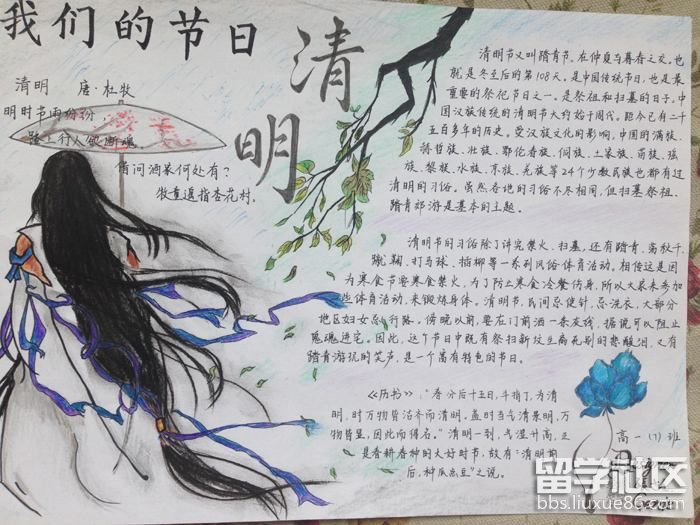 我们的节日
清明
清明 唐·杜牧
明时节雨纷纷
路上行人欲断魂
借问酒家何处有？
牧童遥指杏花村。
清明节又叫踏青节，在仲夏与暮春之交，也
就是冬至后的第108天，是中国传统节日，也是最
重要的祭祀节日之一，是祭祖和扫墓的日子。中
国汉族传统的清明节大约始于周代，距今已有二千
五百多年的历史。受汉族文化的影响，中国的满族、
赫哲族、壮族、鄂伦春族、侗族、土家族、苗族、瑶
族、黎族、水族、京族、羌族等24个少数民族也都有过
清明的习俗。虽然各地的习俗不尽相同，但扫墓祭祖、
踏青郊游是基本的主题。
清明节的习俗除了讲究禁火、扫墓，还有踏青、荡秋千、
蹴鞠、打马球、插柳等一系列风俗体育活动。相传这是因
为寒食节要寒食禁火，为了防止寒食冷餐伤身，所以大家来参加
些体育活动，来锻炼身体。清明节，民间忌使针，忌洗衣，大部分
地区妇女忌行路。傍晚以前，要在门前洒一条灰线，据说可以阻止
鬼魂进宅。因此，这个节日中既有祭扫新坟生离死别的悲酸泪，又有
踏青游玩的笑声，是一个富有特色的节日。
《历书》："春分后十五日，斗指丁，为清
明，时万物皆洁齐而清明，盖时当气清景明，万
物皆显，因此而得名。"清明一到，气温升高，正
是春耕春种的大好时节，故有"清明前
后，种瓜点豆"之说。
高一(7)班
留学社区
bbs.liuxue86.com